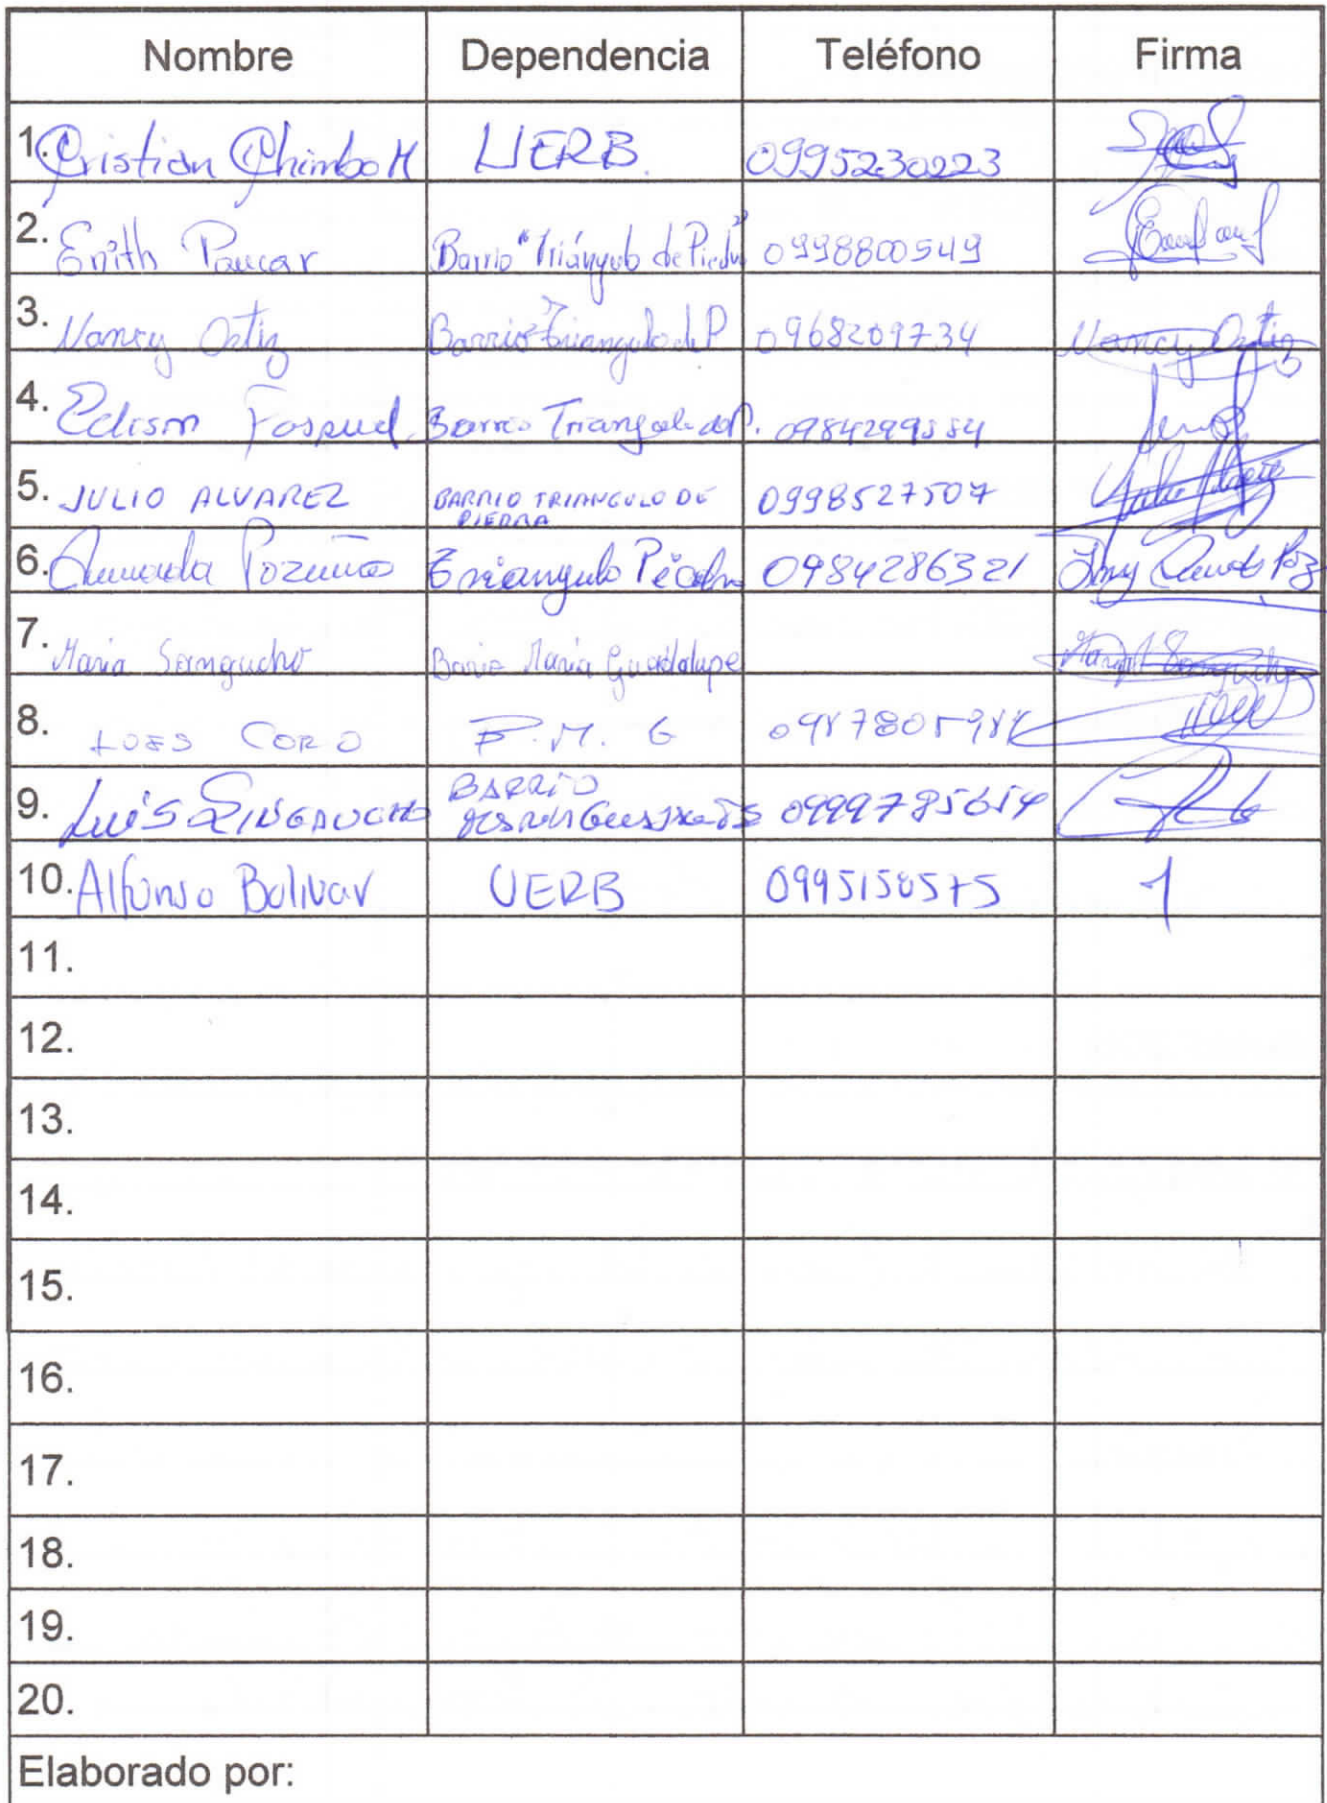 Nombre Dependencia Teléfono Firma
1. Cristian Chimbo M UERB. 0995230223
2. Enith Paucar Barrio "Triángulo de Piedra" 0998800549
3. Nancy Ortiz Barrio Triangulo de P 0968209734 Nancy Ortiz
4. Edison Barrio Triangulo de P. 0984299584
5. JULIO ALVAREZ BARRIO TRIANGULO DE PIEDRA 0998527507 Julio Alvarez
6. Triangulo Piedra 0984286321
7. Maria Sangucho Barrio Maria Guadalupe
8. CORO 6
9. Luis BARRIO
10. Alfonso Bolivar UERB
11.
12.
13.
14.
15.
16.
17.
18.
19.
20.
Elaborado por: